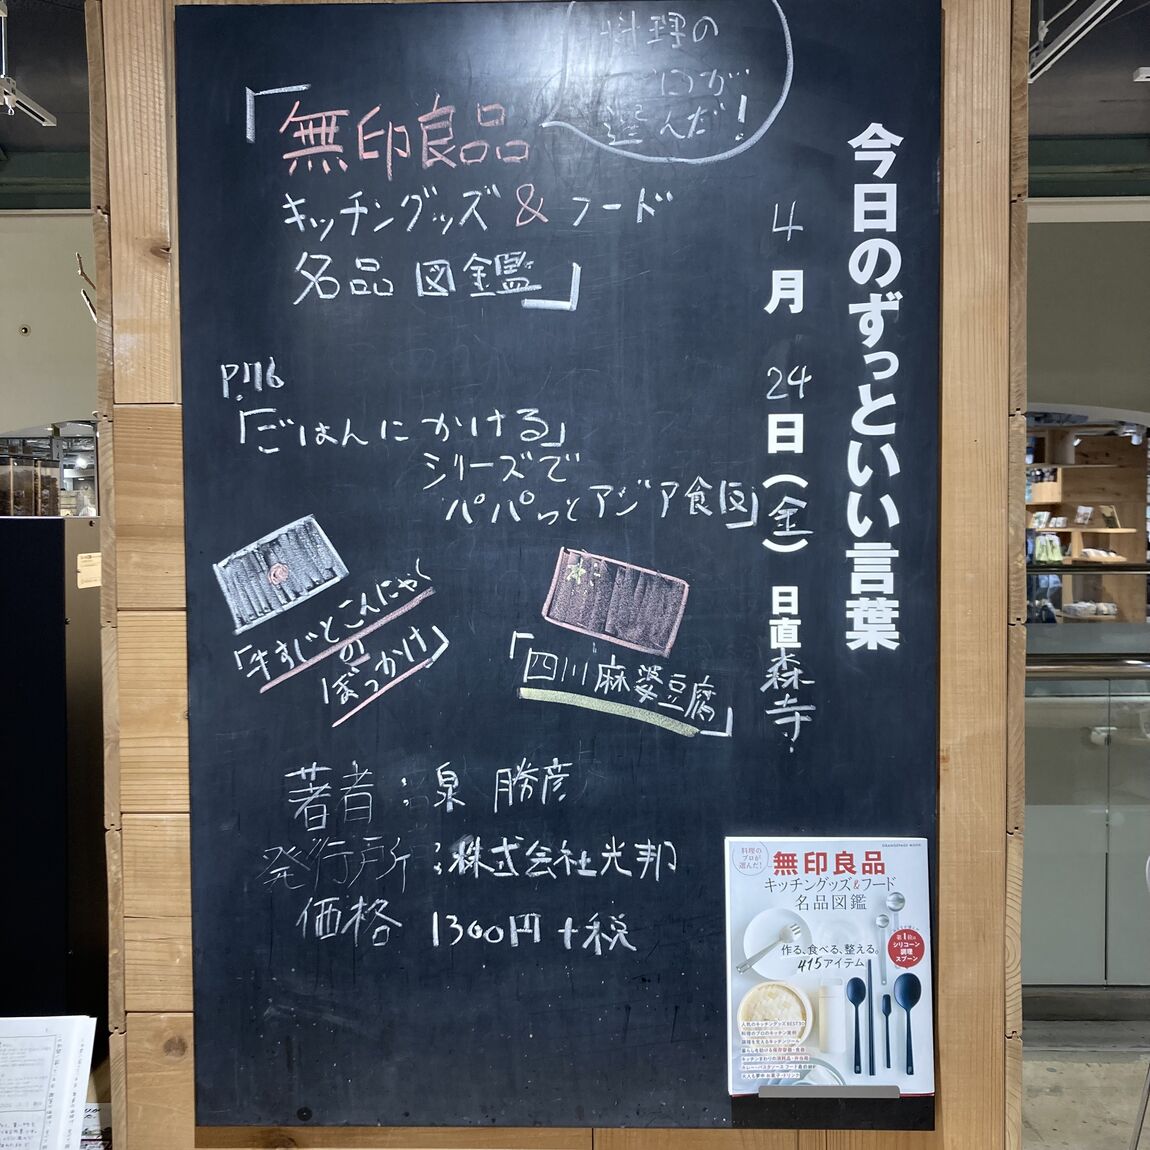 今日のずっといい言葉
4月24日(金) 日直 森寺
料理の
プロが
選んだ!
「無印良品
キッチングッズ&フード
名品図鑑」
P.76
「ごはんにかける」
シリーズで
パパっとアジア食図」
「牛すじとこんにゃく
の
ぼっかけ」
「四川麻婆豆腐」
著者:泉 勝彦
発行所:株式会社光邦
価格 1300円+税
ORANGEPAGE MOOK
料理の
プロが
選んだ!
無印良品
キッチングッズ&フード
名品図鑑
作る、食べる、整える。
415アイテム
シリコーン
調理
スプーン
人気のキッチングッズBEST30
料理のプロのキッチン実例